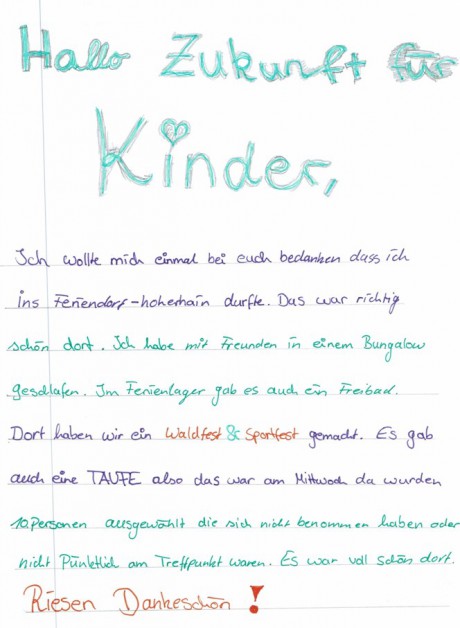 Hallo Zukunft für
Kinder,
Ich wollte mich einmal bei euch bedanken dass ich
ins Feriendorf-hoherhain durfte. Das war richtig
schön dort. Ich habe mit Freunden in einem Bungalow
geschlafen. Im Ferienlager gab es auch ein Freibad.
Dort haben wir ein Waldfest & Sportfest gemacht. Es gab
auch eine TAUFE also das war am Mittwoch da wurden
10 Personen ausgewählt die sich nicht benommen haben oder
nicht Pünktlich am Treffpunkt waren. Es war voll schön dort.
Riesen Dankeschön !